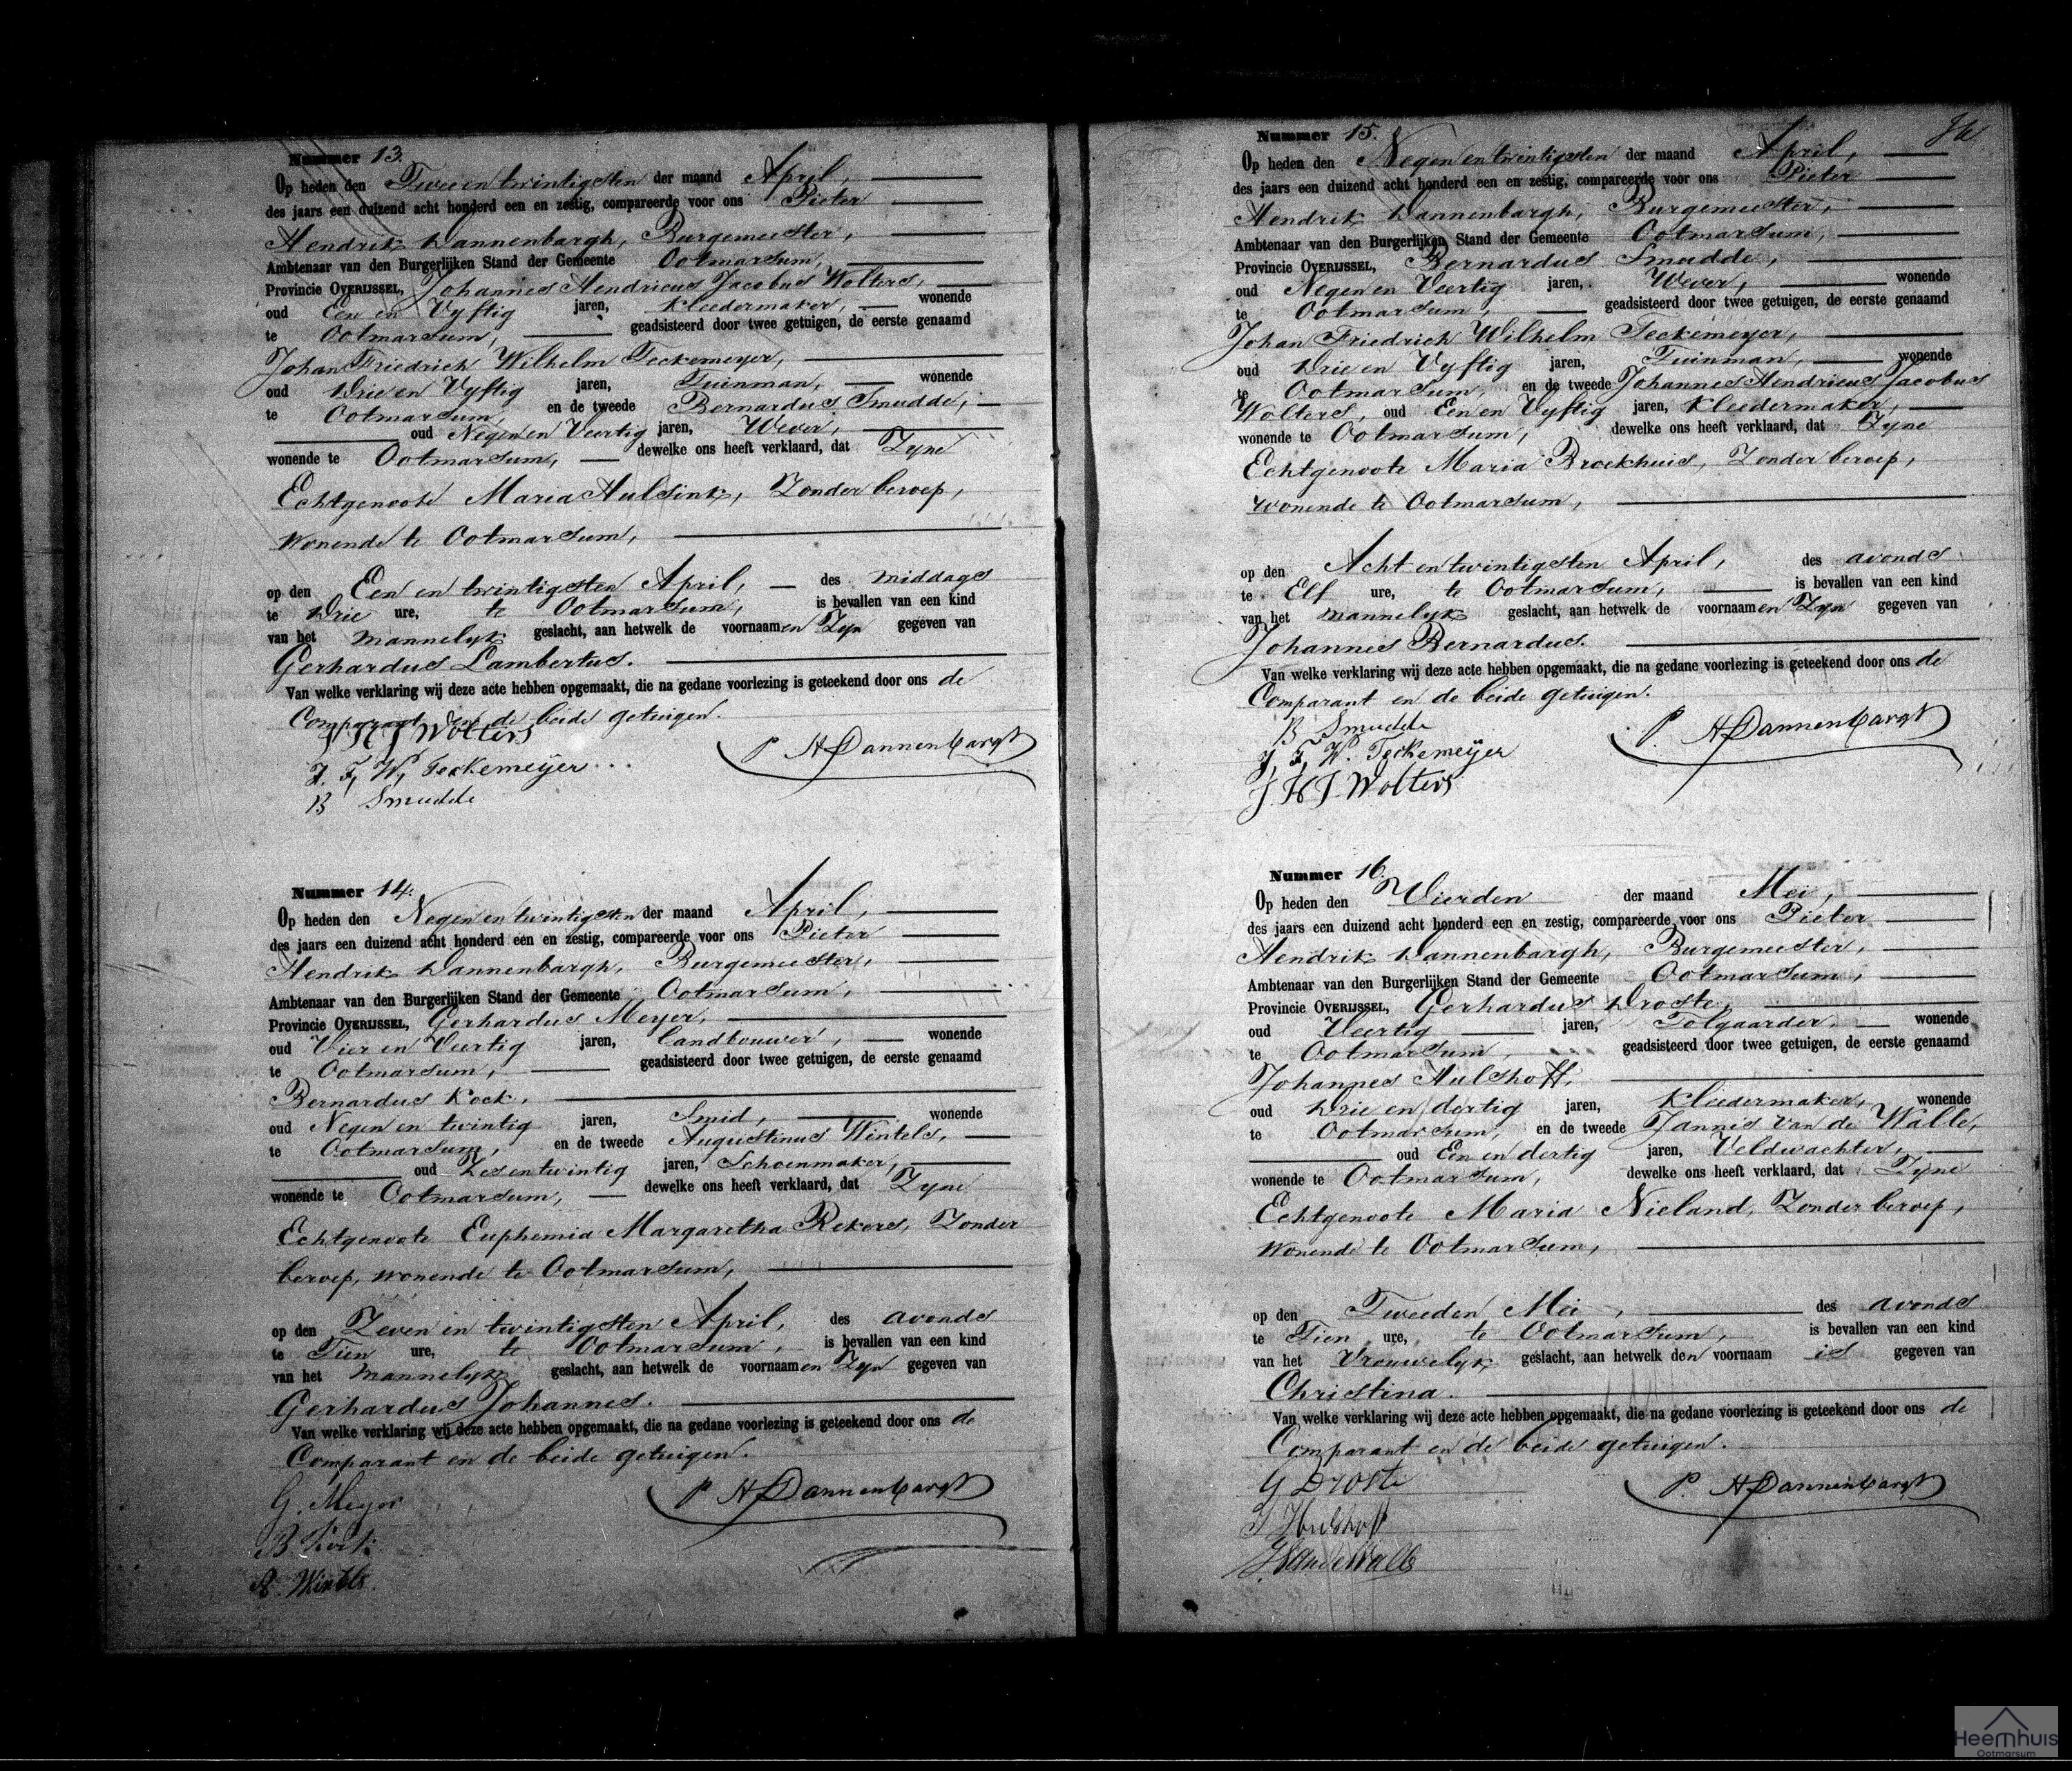 Nummer 13.
Op heden den Twee en twintigsten der maand April,
des jaars een duizend acht honderd een en zestig, compareerde voor ons Pieter
Hendrik Dannenbargh, Burgemeester,
Ambtenaar van den Burgerlijken Stand der Gemeente Ootmarsum,
Provincie OVERIJSSEL, Johannes Hendricus Jacobus Wolters,
oud Een en Vyftig jaren, Kleedermaker, wonende
te Ootmarsum, geadsisteerd door twee getuigen, de eerste genaamd
Johan Friedrich Wilhelm Teckemeyer,
oud Drie en Vyftig jaren, Tuinman, wonende
te Ootmarsum, en de tweede Bernardus Smudde,
oud Negen en Veertig jaren, Wever,
wonende te Ootmarsum, dewelke ons heeft verklaard, dat Zyne
Echtgenoote Maria Hulsink, Zonder beroep,
wonende te Ootmarsum,
op den Een en twintigsten April, des middags
te Drie ure, te Ootmarsum, is bevallen van een kind
van het mannelyk geslacht, aan hetwelk de voornaamen Zyn gegeven van
Gerhardus Lambertus.
Van welke verklaring wij deze acte hebben opgemaakt, die na gedane voorlezing is geteekend door ons de
Comparant en de beide getuigen.
J H J Wolters
P H Dannenbargh
J. F. W. Teckemeijer
B Smudde
Nummer 14.
Op heden den Negen en twintigsten der maand April,
des jaars een duizend acht honderd een en zestig, compareerde voor ons Pieter
Hendrik Dannenbargh, Burgemeester,
Ambtenaar van den Burgerlijken Stand der Gemeente Ootmarsum,
Provincie OVERIJSSEL, Gerhardus Meyer,
oud Vier en Veertig jaren, Landbouwer, wonende
te Ootmarsum, geadsisteerd door twee getuigen, de eerste genaamd
Bernardus Kock,
oud Negen en twintig jaren, Smid, wonende
te Ootmarsum, en de tweede Augustinus Wintels,
oud Zes en twintig jaren, Schoenmaker,
wonende te Ootmarsum, dewelke ons heeft verklaard, dat Zyne
Echtgenoote Euphemia Margaretha Rekers, Zonder
beroep, wonende te Ootmarsum,
op den Zeven en twintigsten April, des avonds
te Tien ure, te Ootmarsum, is bevallen van een kind
van het mannelyk geslacht, aan hetwelk de voornaamen Zyn gegeven van
Gerhardus Johannes.
Van welke verklaring wij deze acte hebben opgemaakt, die na gedane voorlezing is geteekend door ons de
Comparant en de beide getuigen.
G. Meyer
P H Dannenbargh
B Kock
A. Wintels
Nummer 15.
Op heden den Negen en twintigsten der maand April,
des jaars een duizend acht honderd een en zestig, compareerde voor ons Pieter
Hendrik Dannenbargh, Burgemeester,
Ambtenaar van den Burgerlijken Stand der Gemeente Ootmarsum,
Provincie OVERIJSSEL, Bernardus Smudde,
oud Negen en Veertig jaren, Wever, wonende
te Ootmarsum, geadsisteerd door twee getuigen, de eerste genaamd
Johan Friedrich Wilhelm Teckemeyer,
oud Drie en Vyftig jaren, Tuinman, wonende
te Ootmarsum, en de tweede Johannes Hendricus Jacobus
Wolters, oud Een en Vyftig jaren, Kleedermaker,
wonende te Ootmarsum, dewelke ons heeft verklaard, dat Zyne
Echtgenoote Maria Broekhuis, Zonder beroep,
wonende te Ootmarsum,
op den Acht en twintigsten April, des avonds
te Elf ure, te Ootmarsum, is bevallen van een kind
van het mannelyk geslacht, aan hetwelk de voornaamen Zyn gegeven van
Johannes Bernardus.
Van welke verklaring wij deze acte hebben opgemaakt, die na gedane voorlezing is geteekend door ons de
Comparant en de beide getuigen.
B Smudde
P. H Dannenbargh
J. F. W. Teckemeijer
J. H J. Wolters
Nummer 16.
Op heden den Vierden der maand Mei,
des jaars een duizend acht honderd een en zestig, compareerde voor ons Pieter
Hendrik Dannenbargh, Burgemeester,
Ambtenaar van den Burgerlijken Stand der Gemeente Ootmarsum,
Provincie OVERIJSSEL, Gerhardus Droste,
oud Veertig jaren, Tolgaarder, wonende
te Ootmarsum, geadsisteerd door twee getuigen, de eerste genaamd
Johannes Hulshoff,
oud Drie en dertig jaren, Kleedermaker, wonende
te Ootmarsum, en de tweede Jannis van de Walle,
oud Een en dertig jaren, Veldwachter,
wonende te Ootmarsum, dewelke ons heeft verklaard, dat Zyne
Echtgenoote Maria Nieland, Zonder beroep,
wonende te Ootmarsum,
op den Tweeden Mei, des avonds
te Tien ure, te Ootmarsum, is bevallen van een kind
van het Vrouwelyk geslacht, aan hetwelk den voornaam is gegeven van
Christina.
Van welke verklaring wij deze acte hebben opgemaakt, die na gedane voorlezing is geteekend door ons de
Comparant en de beide getuigen.
G Droste
P. H Dannenbargh
J Hulshoff
J. Vande Walle
Heemhuis
Ootmarsum